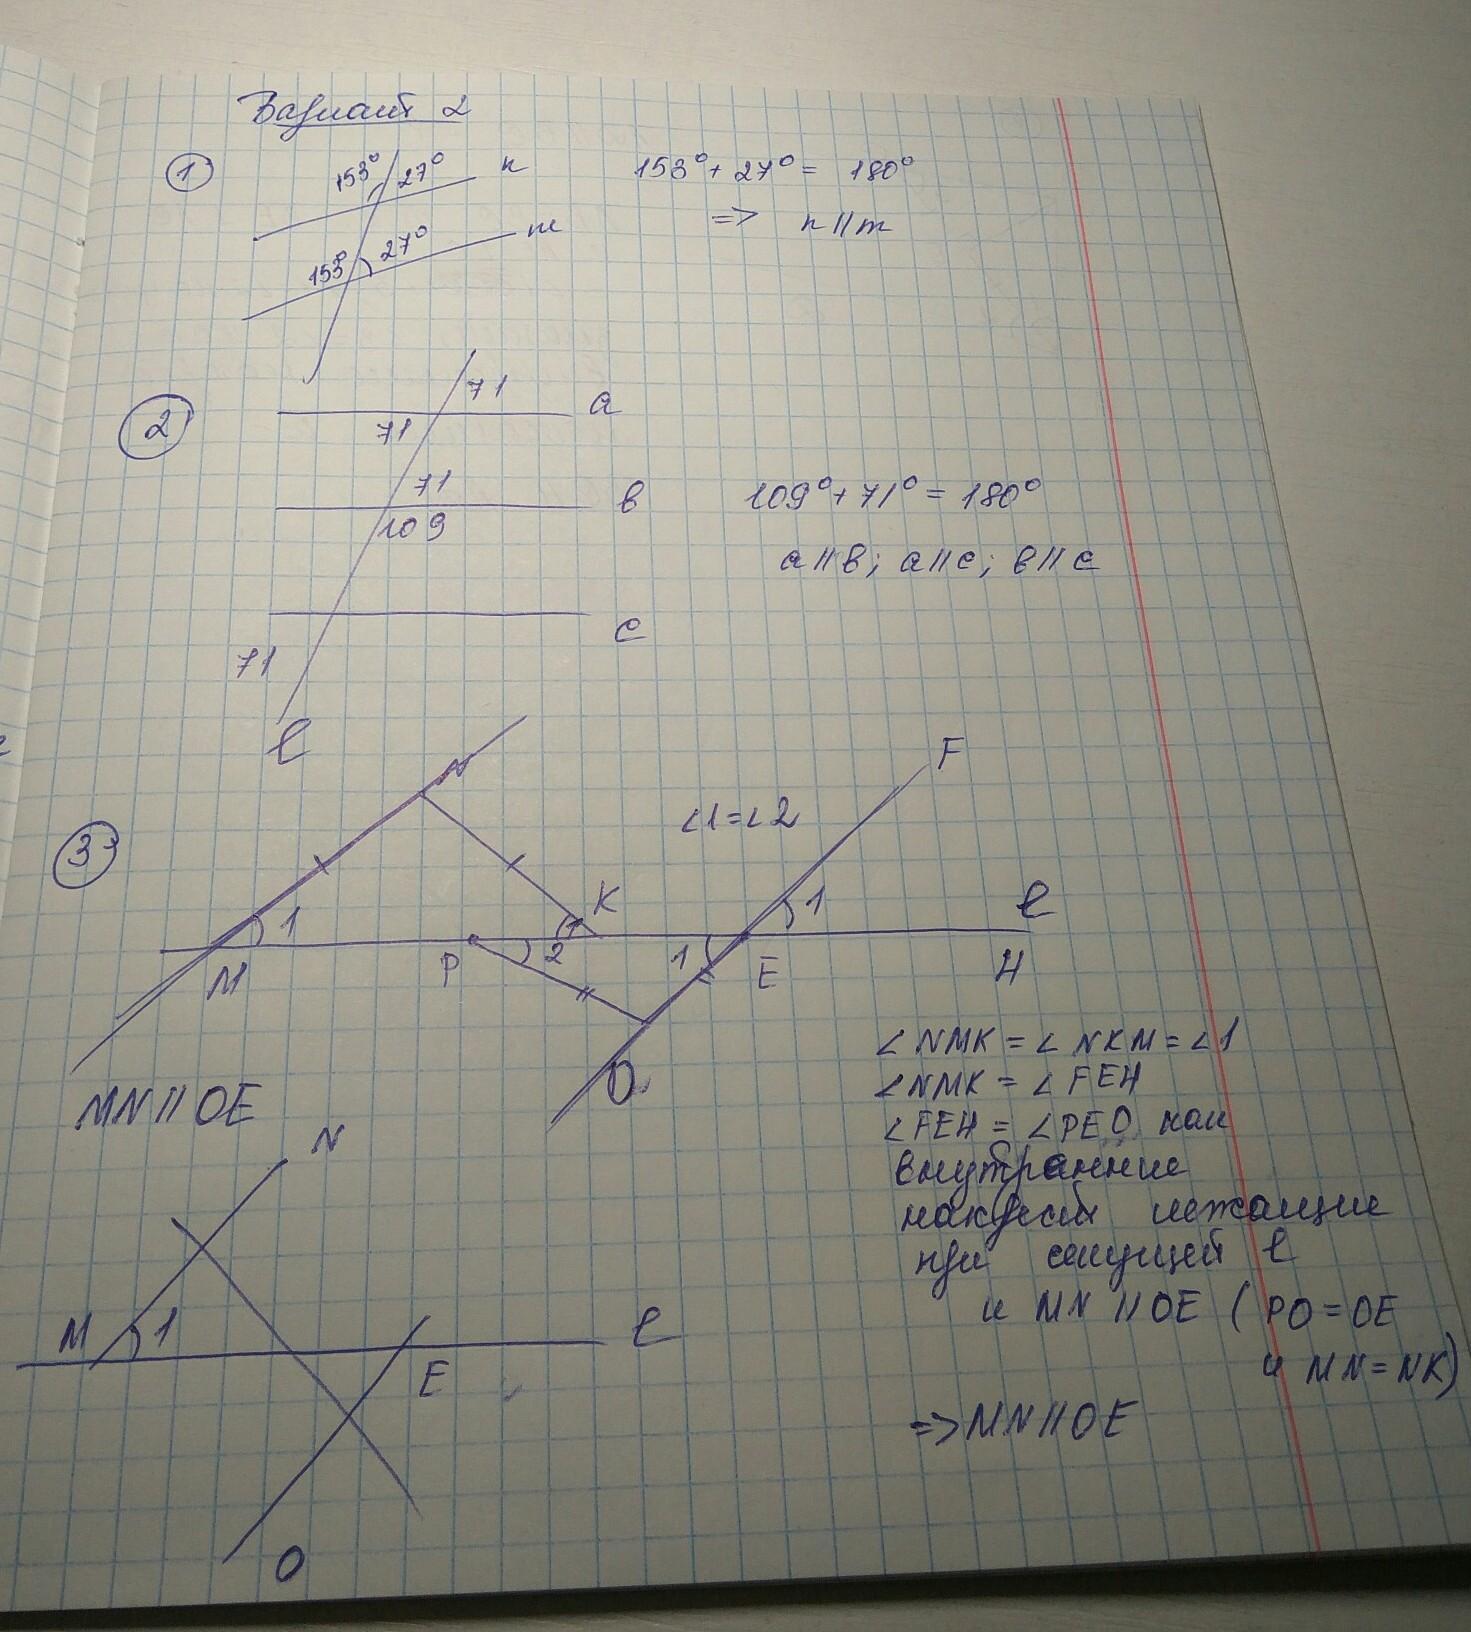 Вариант 2
1
153° 27° n
153° 27° m
153° + 27° = 180°
=> n || m
2
71
71 a
71 b
109
c
71
l
109° + 71° = 180°
a || b; a || c; b || c
3
N F
∠1 = ∠2
1 K 1 l
M P 2 1 E H
O
MN || OE
∠NMK = ∠NKM = ∠1
∠NMK = ∠FEH
∠FEH = ∠PEO как
внутранние
накрест лежащие
при секущей l
и MN || OE ( PO = OE
и MN = NK )
=> MN || OE
N
M 1 l
E
O